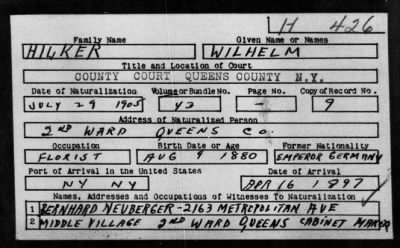 H 426
Family Name Given Name or Names
HILKER WILHELM
Title and Location of Court
COUNTY COURT QUEENS COUNTY N.Y.
Date of Naturalization Volume or Bundle No. Page No. Copy of Record No.
JULY 29 1905 42 - 9
Address of Naturalized Person
2ND WARD QUEENS CO.
Occupation Birth Date or Age Former Nationality
FLORIST AUG 9 1880 EMPEROR GERMANY
Port of Arrival in the United States Date of Arrival
NY NY APR 16 1897
Names, Addresses and Occupations of Witnesses To Naturalization
1 BERNHARD NEUBERGER-2163 METROPOLITAN AVE
2 MIDDLE VILLAGE 2ND WARD QUEENS CABINET MAKER